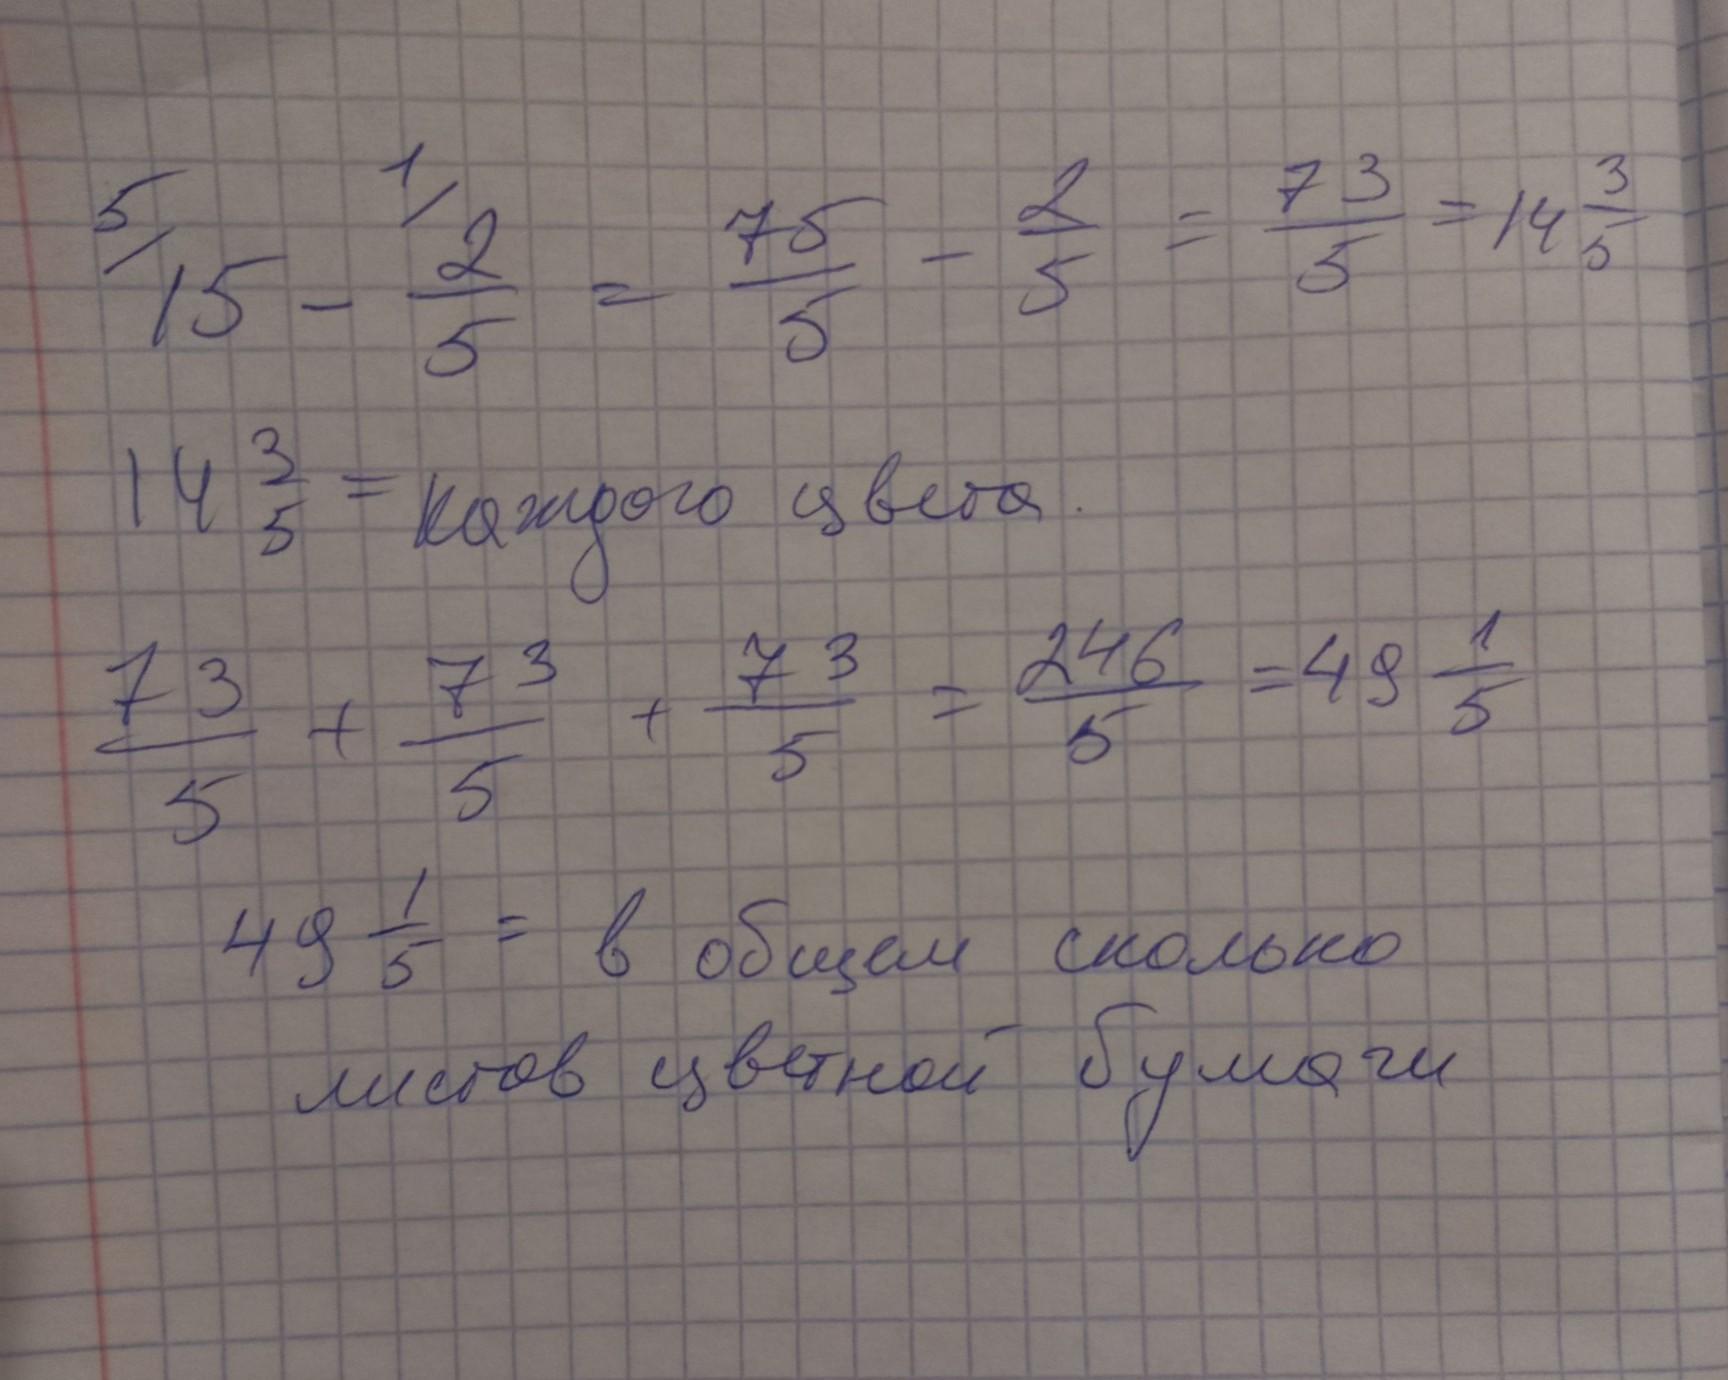 5/15 - 1/ 2/5 = 75/5 - 2/5 = 73/5 = 14 3/5
14 3/5 = каждого цвета.
73/5 + 73/5 + 73/5 = 246/5 = 49 1/5
49 1/5 = в общем сколько
листов цветной бумаги